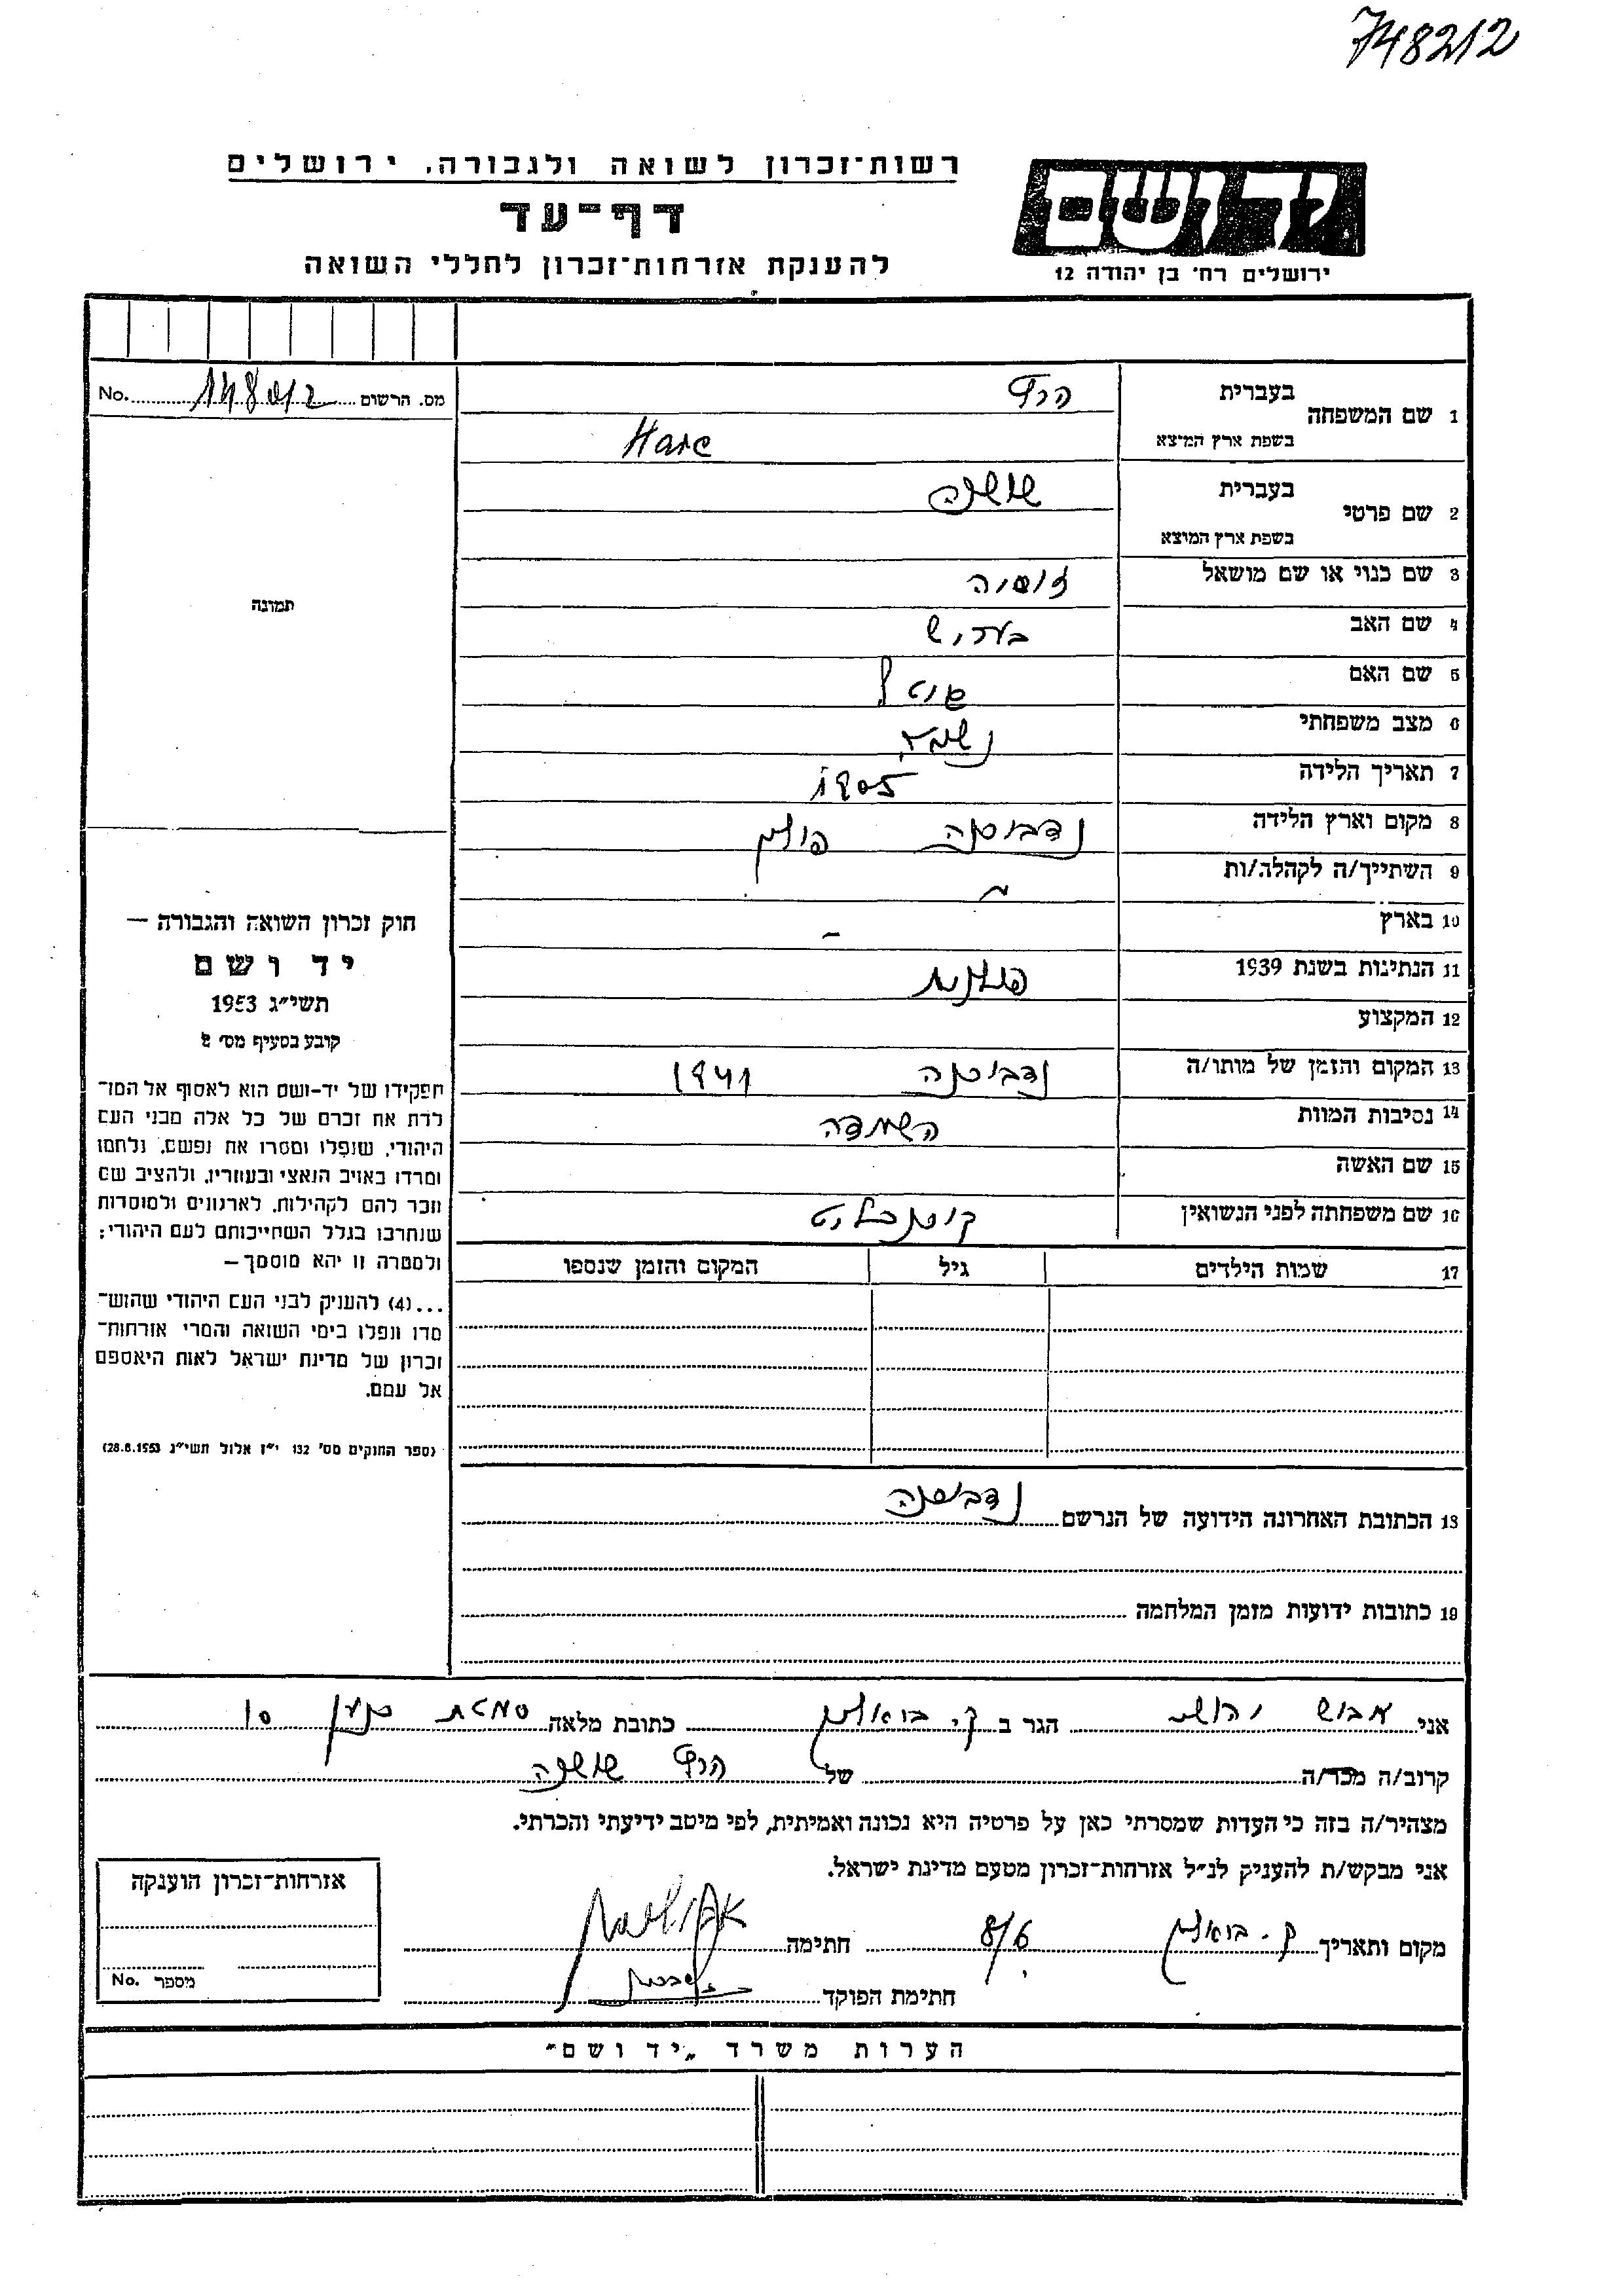 748212
רשות־זכרון לשואה ולגבורה, ירושלים
דף־עד
להענקת אזרחות־זכרון לחללי השואה
יד ושם
ירושלים רח' בן יהודה 12
מס. הרשום No.
1 שם המשפחה
בעברית הרץ
בשפת ארץ המוצא Harc
2 שם פרטי
בעברית שושנה
בשפת ארץ המוצא
3 שם כנוי או שם מושאל זוסיה
4 שם האב
5 שם האם
6 מצב משפחתי נשואה
7 תאריך הלידה 1905
8 מקום וארץ הלידה נדבורנה פולין
9 השתייך/ה לקהלה/ות –
10 בארץ –
11 הנתינות בשנת 1939 פולנית
12 המקצוע
13 המקום והזמן של מותו/ה נדבורנה 1941
14 נסיבות המוות השמדה
15 שם האשה
16 שם משפחתה לפני הנשואין
17 שמות הילדים גיל המקום והזמן שנספו
תמונה
חוק זכרון השואה והגבורה —
יד ושם
תשי"ג 1953
קובע בסעיף מס' 2
תפקידו של יד-ושם הוא לאסוף אל המו־
לדת את זכרם של כל אלה מבני העם
היהודי, שנפלו ומסרו את נפשם, נלחמו
ומרדו באויב הנאצי ובעוזריו, ולהציב שם
וזכר להם לקהילות, לארגונים ולמוסדות
שנחרבו בגלל השתייכותם לעם היהודי;
ולמטרה זו יהא מוסמך —
...(4) להעניק לבני העם היהודי שהוש־
מדו ונפלו בימי השואה והמרי אזרחות־
זכרון של מדינת ישראל לאות היאספם
אל עמם.
(ספר החוקים מס' 132 י"ז אלול תשי"ג 28.8.1953)
18 הכתובת האחרונה הידועה של הנרשם נדבורנה
19 כתובות ידועות מזמן המלחמה
אני הגר ב ק. ביאליק כתובת מלאה 10
קרוב/ה מכר/ה של הרץ שושנה
מצהיר/ה בזה כי העדות שמסרתי כאן על פרטיה היא נכונה ואמיתית, לפי מיטב ידיעתי והכרתי.
אני מבקש/ת להעניק לנ"ל אזרחות־זכרון מטעם מדינת ישראל.
מקום ותאריך ק. ביאליק 8/6 חתימה
חתימת הפוקד
אזרחות־זכרון הוענקה
מספר No.
הערות משרד "יד ושם"